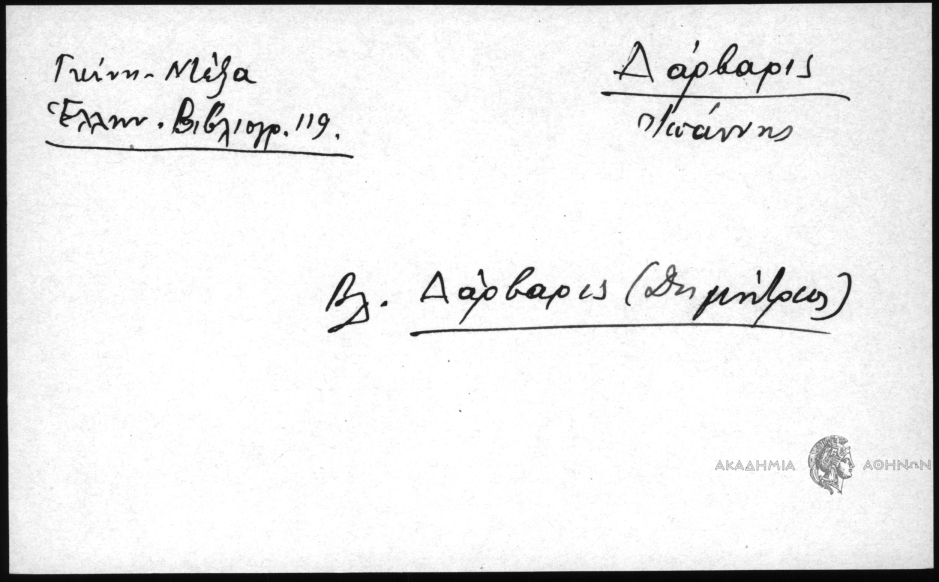 Γκίνη - Μέξα
Ἑλλην. Βιβλιογρ. 119.
Δάρβαρις
Ἰωάννης
βλ. Δάρβαρις (Δημήτριος)
ΑΚΑΔΗΜΙΑ ΑΘΗΝΩΝ